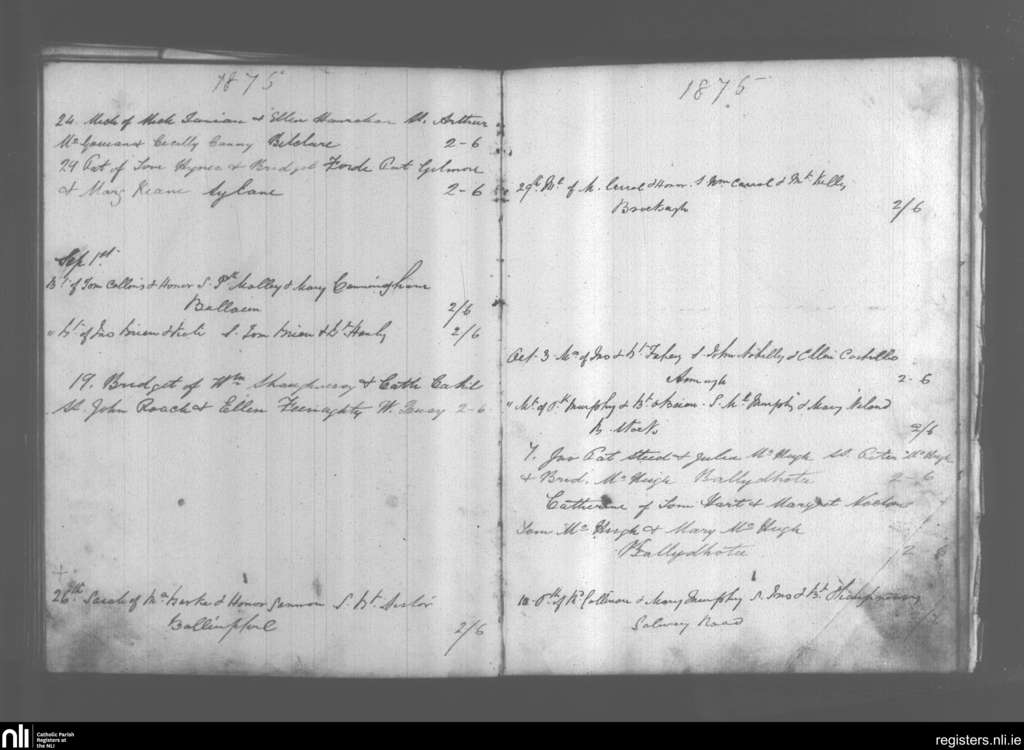 1875
24. Mich of Mich & Ellen Hanrahan St. Arthur
Mc Gowan & Cecily Canny Belclare
2-6
24 Pat of Tom Hynes & Bridget Forde Pat Gilmore
& Marg Keane Aylane
2-6
Sep 1st
Bt of Tom Collins & Honor S. Pk Malley & Mary Cunningham
Ballaun
2/6
" Bt of Jno Brien & Kate S. Tom Brien & Bt Hanly
2/6
19. Bridget of Wm Shaughnessy & Cath Cahil
St. John Roach & Ellen Feenaghty W. Quay 2-6
26th Sarah of Burke & Honor Gannon S. Bt
2/6
1875
29th Mt of M. Carrol & Honor S Wm Carrol & Mt Kelly
2/6
Oct. 3 of Jno & Bt Fahey S John & Ellen Costello
2-6
" Mt of Pk Murphy & Bt S. Mt Murphy & Mary
2/6
7. Jno Pat & Julia Mc Hugh St. Peter Mc Hugh
& Brid. Mc Hugh Ballydhotia
2-6
Catherine of Tom Hart & Margret
Tom Mc Hugh & Mary Mc Hugh
Ballydhotia
2
10 Pk of & Mary Murphy S. Jno & Bt Shaughnessy
Galway Road
nli
Catholic Parish
Registers at
the NLI
registers.nli.ie